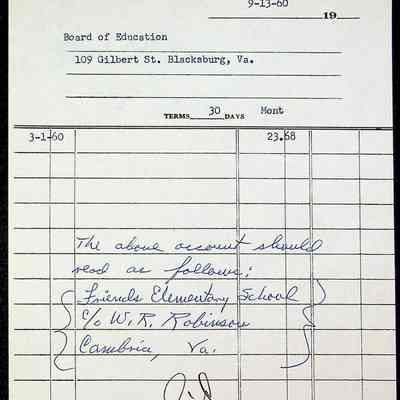 9-13-60
19
Board of Education
109 Gilbert St. Blacksburg, Va.
TERMS 30 DAYS Mont
3-1-60 23.68
The above account should
read as follows:
Friends Elementary School
c/o W. R. Robinson
Cambria, Va.